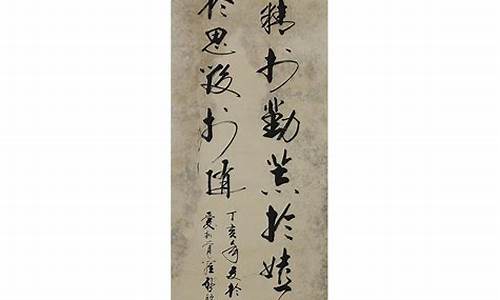 精於勤荒於嬉
於思毀於随
丁亥年夏於